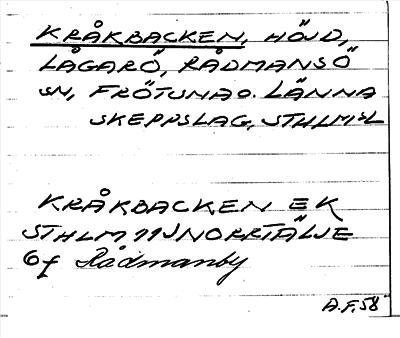 KRÅKBACKEN, HÖJD,
LÅGARÖ, RÅDMANSÖ
SN, FRÖTUNA O. LÄNNA
SKEPPSLAG, STHLMSL
KRÅKBACKEN EK
STHLM 11J NORRTÄLJE
6f Rådmanby
A.F. 58